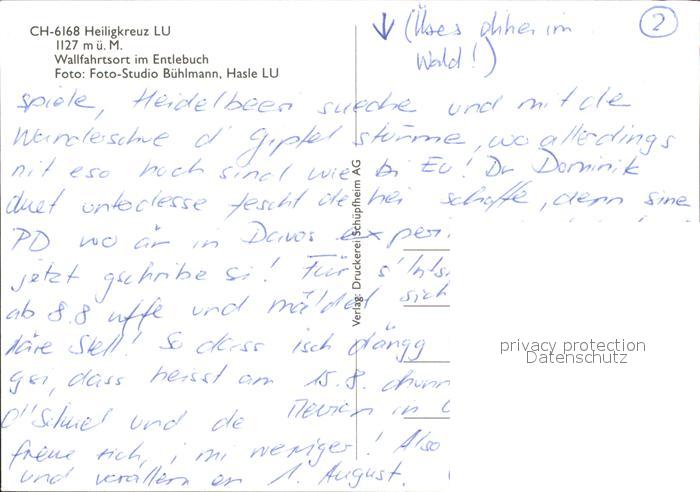 CH-6168 Heiligkreuz LU
1127 m ü. M.
Wallfahrtsort im Entlebuch
Foto: Foto-Studio Bühlmann, Hasle LU
↓ (Üses dihei im
Wald!)
2
spiele, Heidelbeeri sueche und mit de
Wanderschue d' Gipfel stürme, wo allerdings
nit eso hoch sind wie bi Eu! Dr Dominik
duet unterdesse fescht dehei schaffe, denn sine
PD wo är in Davos
jetzt gschribe si! Für s'
ab 8.8 uffe und mäldet sich
Stell! So dass isch
gsi, dass heisst am 15.8.
und de in
freue sich, i mi weniger! Also
und vorallem en 1. August.
Verlag: Druckerei Schüpfheim AG
privacy protection
Datenschutz